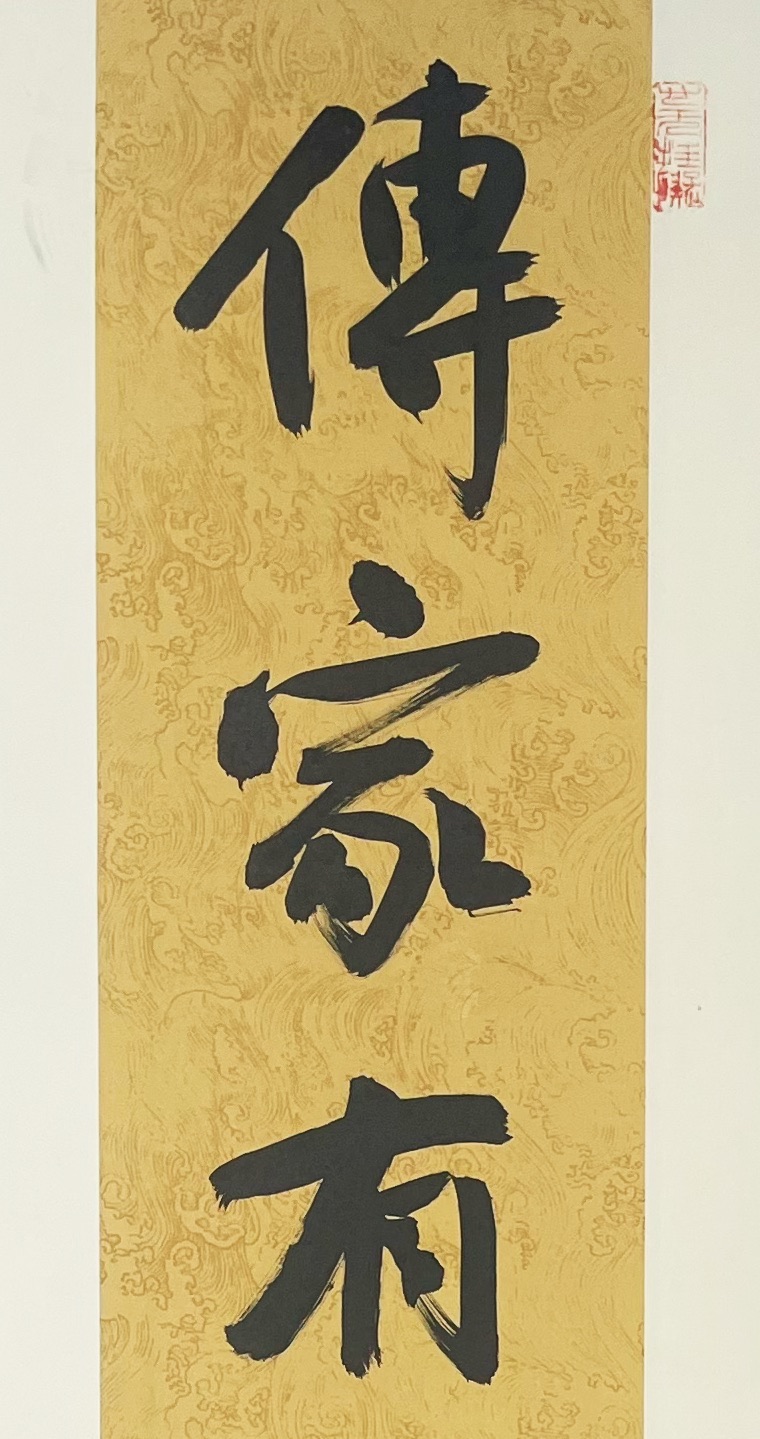 傳家有